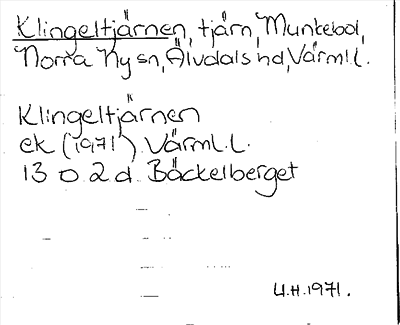 Klingeltjärnen, tjärn, Munkebol,
Norra Ny sn, Älvdals hd, Värml.l.
Klingeltjärnen
ek (1971) Värml.l.
13 D 2 d Bäckelberget
U.H.1971.